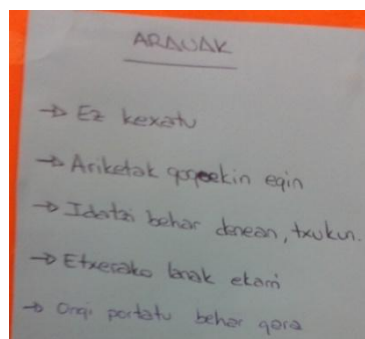 ARAUAK
→ Ez kexatu
→ Ariketak gogoekin egin
→ Idatzi behar denean, txukun.
→ Etxerako lanak ekarri
→ Ongi portatu behar gara